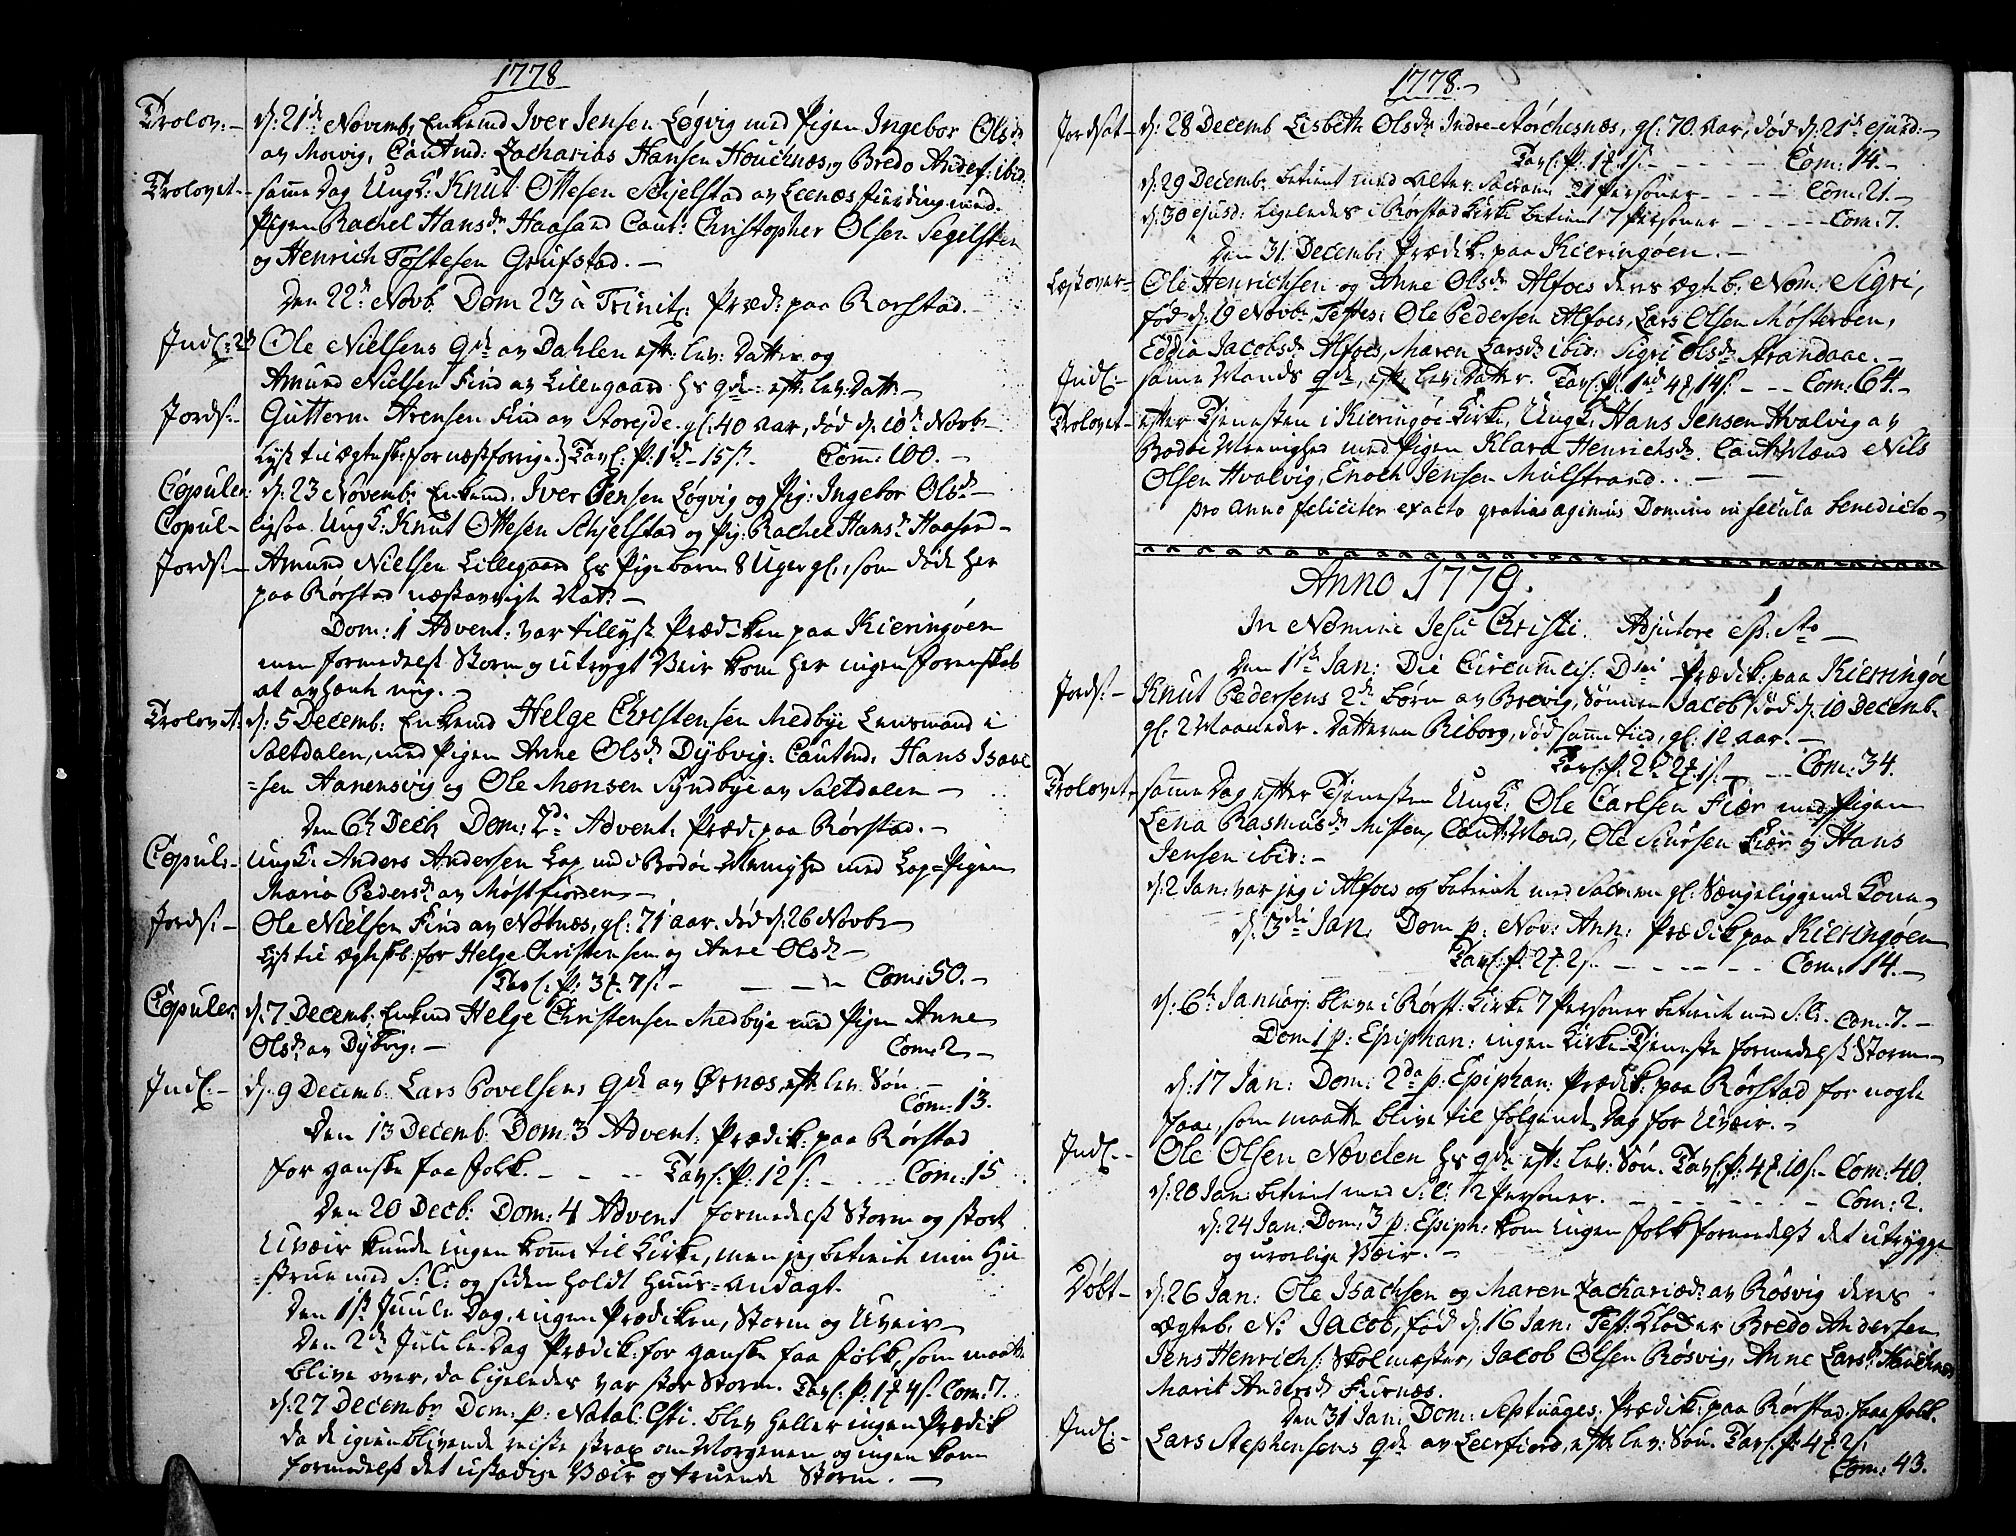 1778
Trolov: d: 21de Novemb, Enkemd Iver Jensen Løgvig med Pigen Ingebor Olsd
av Movig, Cautmd: Zacharias Hansen Houchnæs, Bredo Anders: ibid:
Trolovet samme Dag Ungk: Knut Ottesen Schjelstad av Leenæs fierding med
Pigen Rachel Hansdr Haasand Caut: Christopher Olsen Segelsten
og Henrich Tostesen Grufstad.
Den 22de Novb. Dom 23 à Trinit: Præd: paa Rørstad.
Indl: 2d Ole Nielsens qde av Dahlen eft: lev: Datter og
Amund Nielsen Find av Lillegaard hs qde: eft: lev: Datt:
Jords: Guttorm Arensen Find av Storejde. gl: 40 Aar, død d: 10de Novbr
Lyst til ægtesk: for næstforrige. Tavl: P: 1 15s. Com: 100.
Copuler: d: 23 Novemb: Enkemd: Iver Jensen Løgvig og Pig: Ingebor Olsdr
Copul ligesaa Ungk: Knut Ottesen Schjelstad og Pig: Rachel Hansdr Haasand
Jords: Amund Nielsen Lillegaard hs Pigebarn 8 Uger gl:, som døde her
paa Rørstad næstavvigte Nat:
Dom: 1 Advent: var tillyst Prædiken paa Kieringøen
men formedelst Storm og utrygt Veir kom her ingen forenskab
at avhænte mig.
Trolovet: d: 5 Decemb: Enkemd Helge Christensen Medbye Lensmand i
Saltdalen, med Pigen Anne Olsdr Dybvig: Cautmd: Hans Isaac
=sen Aanensvig og Ole Monsen Syndbye av Saltdalen
Den 6te Decb Dom: 2d: Advent: Præd: paa Rørstad.
Copul: Ungk: Anders Andersen Lap ud i Bodøe Menighed med Lap=Pigen
Maria Pedersdr av Møstfiorden
Jords: Ole Nielsen Find av Nøtnæs, gl: 71 aar. død d: 26 Novbr
Lyst til ægtskb: for Helge Christensen og Anne Olsdr
Tavl: P: 3 7s. Com: 50.
Copuler: d: 7 Decemb: Enkmd Helge Christensen Medbye med Pigen Anne
Olsdr av Dybvig: Com: 2
Indl: d: 9 Decemb: Lars Povelsens qde av Ørnæs, eft: lev: Søn.
Com: 13.
Den 13 Decemb: Dom: 3 Advent: Prædik: paa Rørstad
for ganske faa folk. Tavl: P: 12s. Com: 15
Den 20 Decb: Dom: 4 Advent formedelst Storm og stort
Uveir kunde ingen komme til Kirke, men jeg betiente min Hu
=strue med S: C: og siden holdt Huus=Andagt.
Den 1ste Juule Dag, ingen Prædiken, Storm og Uveir
Den 2de Juule Dag Prædik: for ganske faa folk, som maatte
blive over, da ligeledes var stor Storm. Tavl: P: 1 4s. Com: 7.
d: 27 Decembr Dom: p: Natal: Csti. blev heller ingen Prædik
da de igienblivende reiste strax om Morgenen og ingen kom
formedelst det ustadige Væir og truende Storm.
1778.
Jordsat d: 28 Decemb Lisbeth Olsdr Indre-Storchesnæs, gl: 70 Aar, død d: 21de ejusd:
Tavl: P: 1 1s. Com: 14.
d: 29 Decemb: betient med Alter Sacram: 21 Personer Com: 21.
d: 30 ejusd: ligeledes i Rørstad Kirke betient 7 Personer Com: 7.
Den 31 Decemb: Prædik: paa Kieringøen.
Læst over Ole Henrichsen og Anne Olsdr Alfoes deres ægteb: Nom: Sigri,
fød d: 19 Novbr, Testes: Ole Pedersen Alfoes, Lars Olsen Mosterøen,
Eddia Jacobsdr Alfoes, Maren Larsdr ibid: Sigri Olsdr Strandaae.
Indl: samme Mands qde, eft: lev: Datter. Tavl: P: 1 4 14s. Com: 64.
Trolovet efter Tjenesten i Kieringøe Kirke, Ungk: Hans Jensen Hvalvig av
Bodøe Menighed med Pigen Klara Henrichsdr. Caut: Mænd Nils
Olsen Hvalvig, Enoch Jensen Mulstrand.
pro anno feliciter exacto gratias agimus Domino in secula benedicto
Anno 1779.
In Nomine Jesu Christi. Adjutore Sp: Sto
Den 1ste Jan: Die Circumcis: Dni Prædik: paa Kieringøe
Jords: Knut Pedersens 2de børn av Brevig, Sønnen Jacob død d: 10 Decembr
gl: 2 Maaneder. Datteren Riborg, død samme tied, gl: 12 Aar.
Tavl: P: 2 2 1s. Com: 34.
Trolovet samme Dag efter Tjenesten Ungk: Ole Carlsen Fiær med Pigen
Lena Rasmusdr Misten, Caut: Mænd, Ole Siursen Fiær og Hans
Jensen ibid:
d: 2 Jan: var jeg i Alfoes og betiente med Sacram: gl: Sængeliggende Kone
d: 3die Jan: Dom p: Nov: Ann: Prædik paa Kieringøen
Tavl: P: 2 2s. Com: 14.
d: 6te Januarj: bleve i Rørst: Kirke 7 Personer betiente med S: C: Com: 7.
Dom 1 p: Epiphan: ingen Kirke-Tjeneste formedelst Storm
d: 17 Jan: Dom: 2da p: Epiphan: Prædik: paa Rørstad for nogle
faae, som maatte blive til følgende Dag for Uveir.
Indl: Ole Olsen Nævelen hs qde eft: lev: Søn. Tavl: P: 4 10s. Com: 40.
d: 20 Jan: betient med S: C: 2 Personer. Com: 2.
d: 24 Jan: Dom: 3 p: Epiph: kom ingen folk formedelst det utrygge
og urolige Væir.
Døbt d: 26 Jan: Ole Isachsen og Maren Zachariædr av Røsvig deres
ægteb: N: Jacob, fød d: 16 Jan: Test: Klokker Bredo Andersen
Jens Henrichs: Skolmæster, Jacob Olsen Røsvig, Anne Larsdr Houchnæs
Marit Andersdr Furnæs.
Den 31 Jan: Dom: Septuages: Prædik: paa Rørstad faae folk.
Indl: Lars Stephensens qde av Leerfiord, eft: lev: Søn. Tavl: P: 4 2s.
Com: 43.